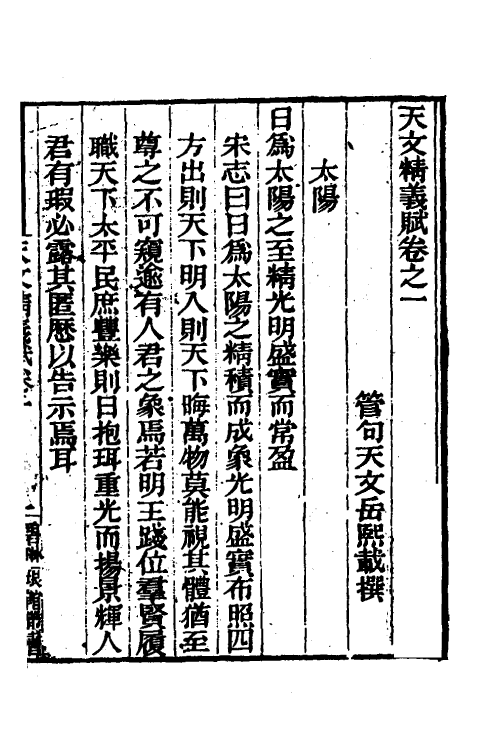 天文精義賦卷之一
管句天文岳熙載撰
太陽
日爲太陽之至精光明盛實而常盈
宋志曰日爲太陽之精積而成象光明盛實布照四
方出則天下明入則天下晦萬物莫能視其體猶至
尊之不可窺逾有人君之象焉若明王踐位羣賢履
職天下太平民庶豐樂則日抱珥重光而揚景輝人
君有瑕必露其匿慝以告示焉耳